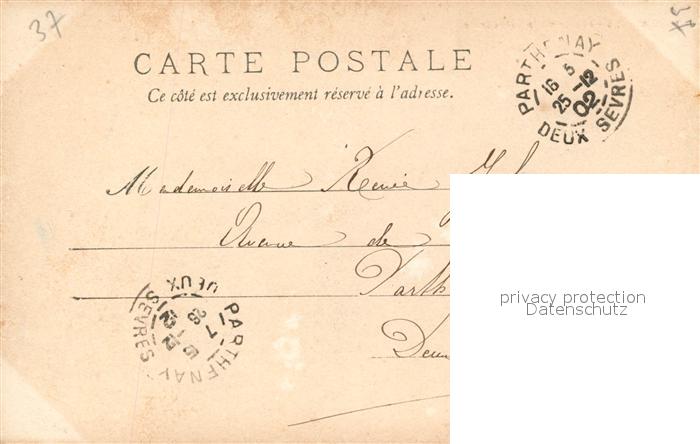 37
CARTE POSTALE
Ce côté est exclusivement réservé à l'adresse.
PARTHENAY
16 5
25 -12
02
DEUX SEVRES
Mademoiselle Renée
Avenue de
Parth
Deux
privacy protection
Datenschutz
PARTHENAY
DEUX SEVRES